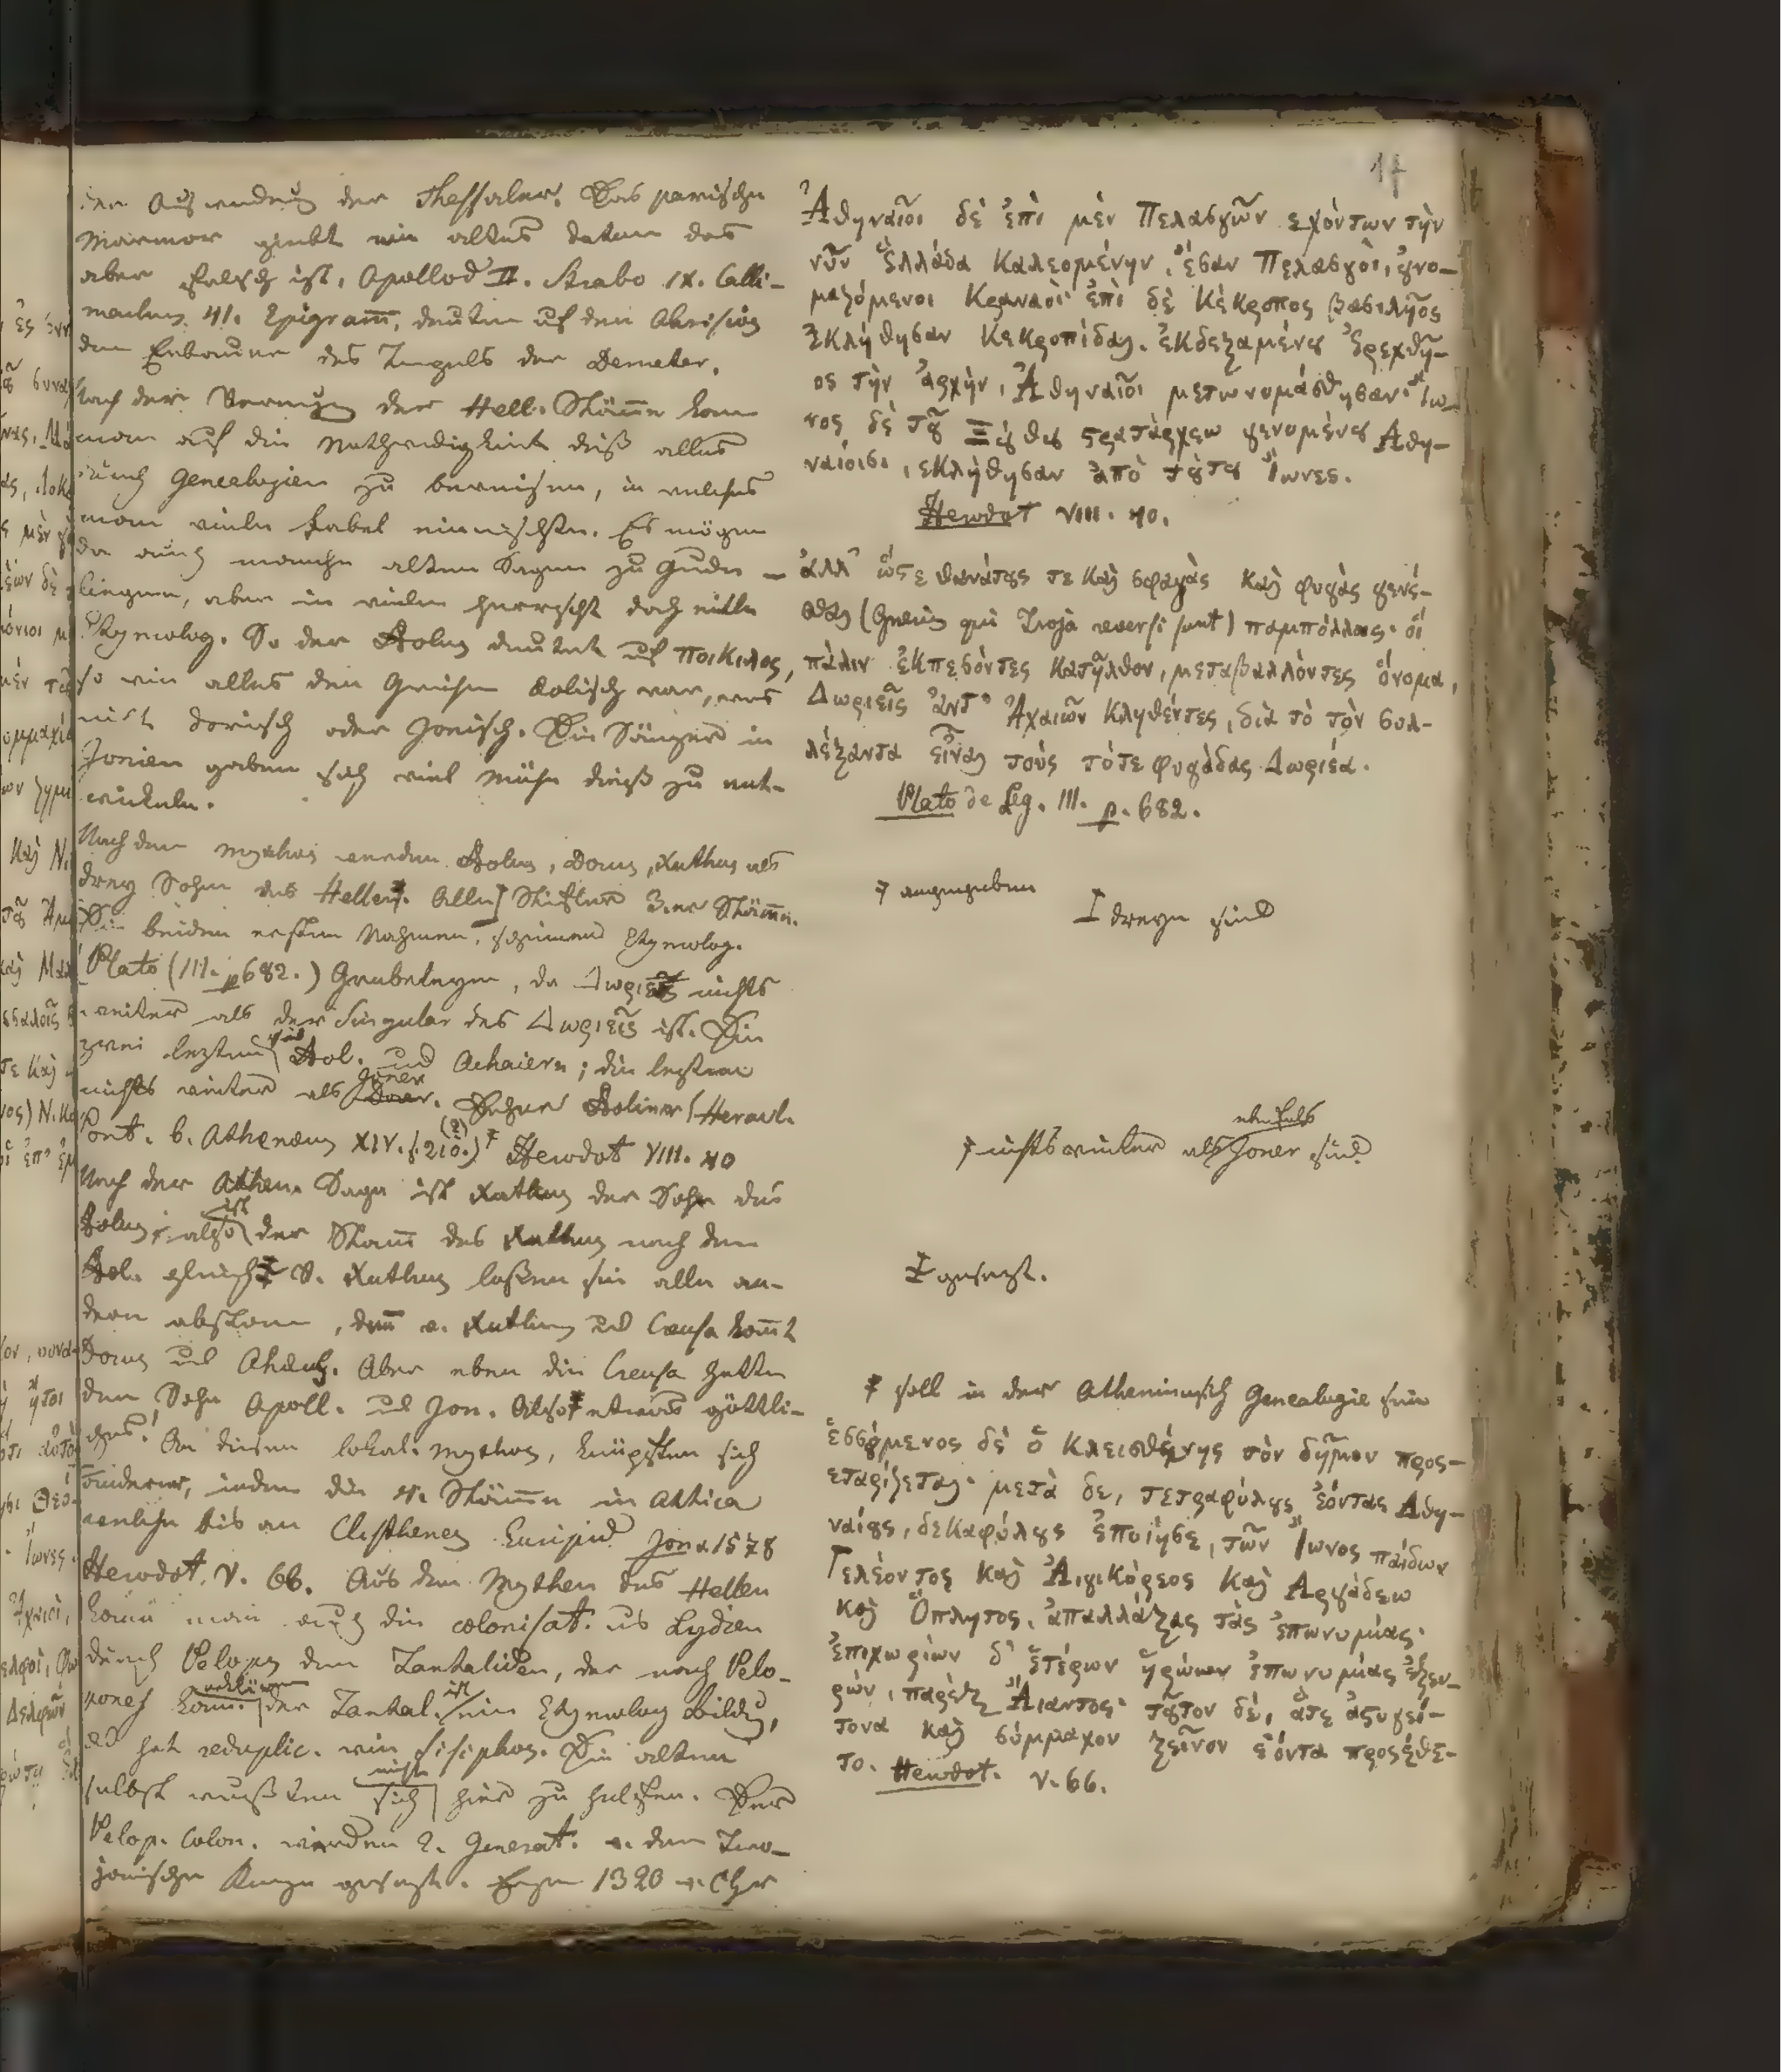 17
der Auswanderung der Thessaler. Das parische
Marmor giebt ein altes datum das
aber falsch ist. Apollod II. Strabo IX. Calli-
machus 41. Epigram̄. deuten auf den Akrisius
den Erbauer des Tempels der Demeter.
Nach der Vermischung der Hell. Stäm̄e kam
man auf die Nothwendigkeit dieß alles
durch Genealogien zu beweisen, in welches
man viele Fabel einmischte. Es mögen
da auch manche alten Sagen zu Grunde
liegen, aber in vielen herrscht doch eitle
Etymolog. So der Äolus deutet auf ποικιλος,
so wie alles den Griechen äolisch war, was
nicht dorisch oder Jonisch. Die Sänger in
Jonien gaben sich viel Mühe dieß zu ent-
wickeln.
Nach dem mythus werden Äolus, Dorus, Xuthus als
drey Söhne des Hellen. Alle Stifter 3.er Stäm̄e.
Die beiden ersten Nahmen, scheinen Etymolog.
Plato (III. p 682.) Grübeleyen, da nichts
weiter als der Singular des Δωριεῖς ist. Die
zwei lezten sind Äol. und Achaiern; die lezten
nichts weiter als Joner. Äolier (Heracl.
Pont. b. Athenæus XIV. f. 210.) (?) Herodot VIII. 40
Nach der Athen. Sage ist Xuthus der Sohn des
Äolus; also ist der Stam̄ des Xuthus nach dem
Äol. gleich V. Xuthus laßen sie alle an-
dern abstam̄, den̄ v. Xuthus und Creusa kom̄t
Dorus und Achäus. Aber eben die Creusa hatte
den Sohn Apoll. und Jon. Also etwas göttli-
ches! An diesen lokal. mythus, knüpften sich
andere, indem die 4. Stäm̄e in Attica
welche bis an Clysthenes Euripid Jon 1578
Herodot. V. 66. Aus dem Mythen des Hellen
kom̄t man auch die colonisat. aus Lydien
durch Pelops den Tantaliden, der nach Pelo-
pones kom̄. der Tantal. ist ein Etymolog Bildg,
und hat reduplic. wie Sisiphos. Die alten
selbst wußten sich nicht hier zu helfen. Der
Pelop. Colon. werden 2. Generat. v. dem Tro-
janischen Kriege gesezt. gegen 1320 v. Chr
Ἀθηναῖοι δὲ ἐπὶ μὲν Πελασγῶν ἐχόντων τὴν
νῦν Ἑλλάδα καλεομένην, ἔσαν Πελασγοὶ, ὀνο-
μαζόμενοι Κραναοὶ ἐπὶ δὲ Κέκροπος βασιλῆος
ἐκλήθησαν Κεκροπίδαι. ἐκδεξαμένȣ Ἐρεχθῆ-
ος τὴν ἀρχὴν, Ἀθηναῖοι μετωνομάσθησαν Ἴω-
νος δὲ τȣ͂ Ξȣ́θȣ ϛρατάρχεω γενομένȣ Ἀθη-
ναίοισι, ἐκλήθησαν ἀπὸ τȣ́τȣ Ἴωνες.
Herodot VIII. 40.
ἀλλ' ὥϛε θανάτȣς τε καὶ σφαγὰς καὶ φυγὰς γενέ-
σθαι (Græcis qui Troja reversi sunt) παμπόλλας· οἵ
πάλιν ἐκπεσόντες κατῆλθον, μεταβαλλόντες ὄνομα,
Δωριεῖς ἀντ' Ἀχαιῶν κληθέντες, διὰ τὸ τὸν συλ-
λέξαντα εἶναι τοὺς τότε φυγάδας Δωριέα.
Plato de Leg. III. p. 682.
angegeben
dreyn sind
nichts weiter als ebenfals Joner sind
gesezt.
soll in der Atheniensisch Genealogie sein
ἑσσȣ́μενος δὲ ὁ Κλεισθένης τὸν δῆμον προς-
εταρίζεται· μετὰ δε, τετραφύλȣς ἐόντας Ἀθη-
ναίȣς, δεκαφύλȣς ἐποίησε, τῶν Ἴωνος παίδων
Γελέοντος καὶ Ἀιγικόρεος καὶ Ἀργάδεω
καὶ Ὅπλητος, ἀπαλλάξας τὰς ἐπωνυμίας·
ἐπιχωρίων δ' ἑτέρων ἡρώων ἐπωνυμίας ἐξευ-
ρὼν, παρὲξ Ἄιαντος· τȣ͂τον δέ, ἅτε ἀϛυγεί-
τονα καὶ σύμμαχον ξεῖνον ἐόντα προσέθε-
το. Herodot. V. 66.